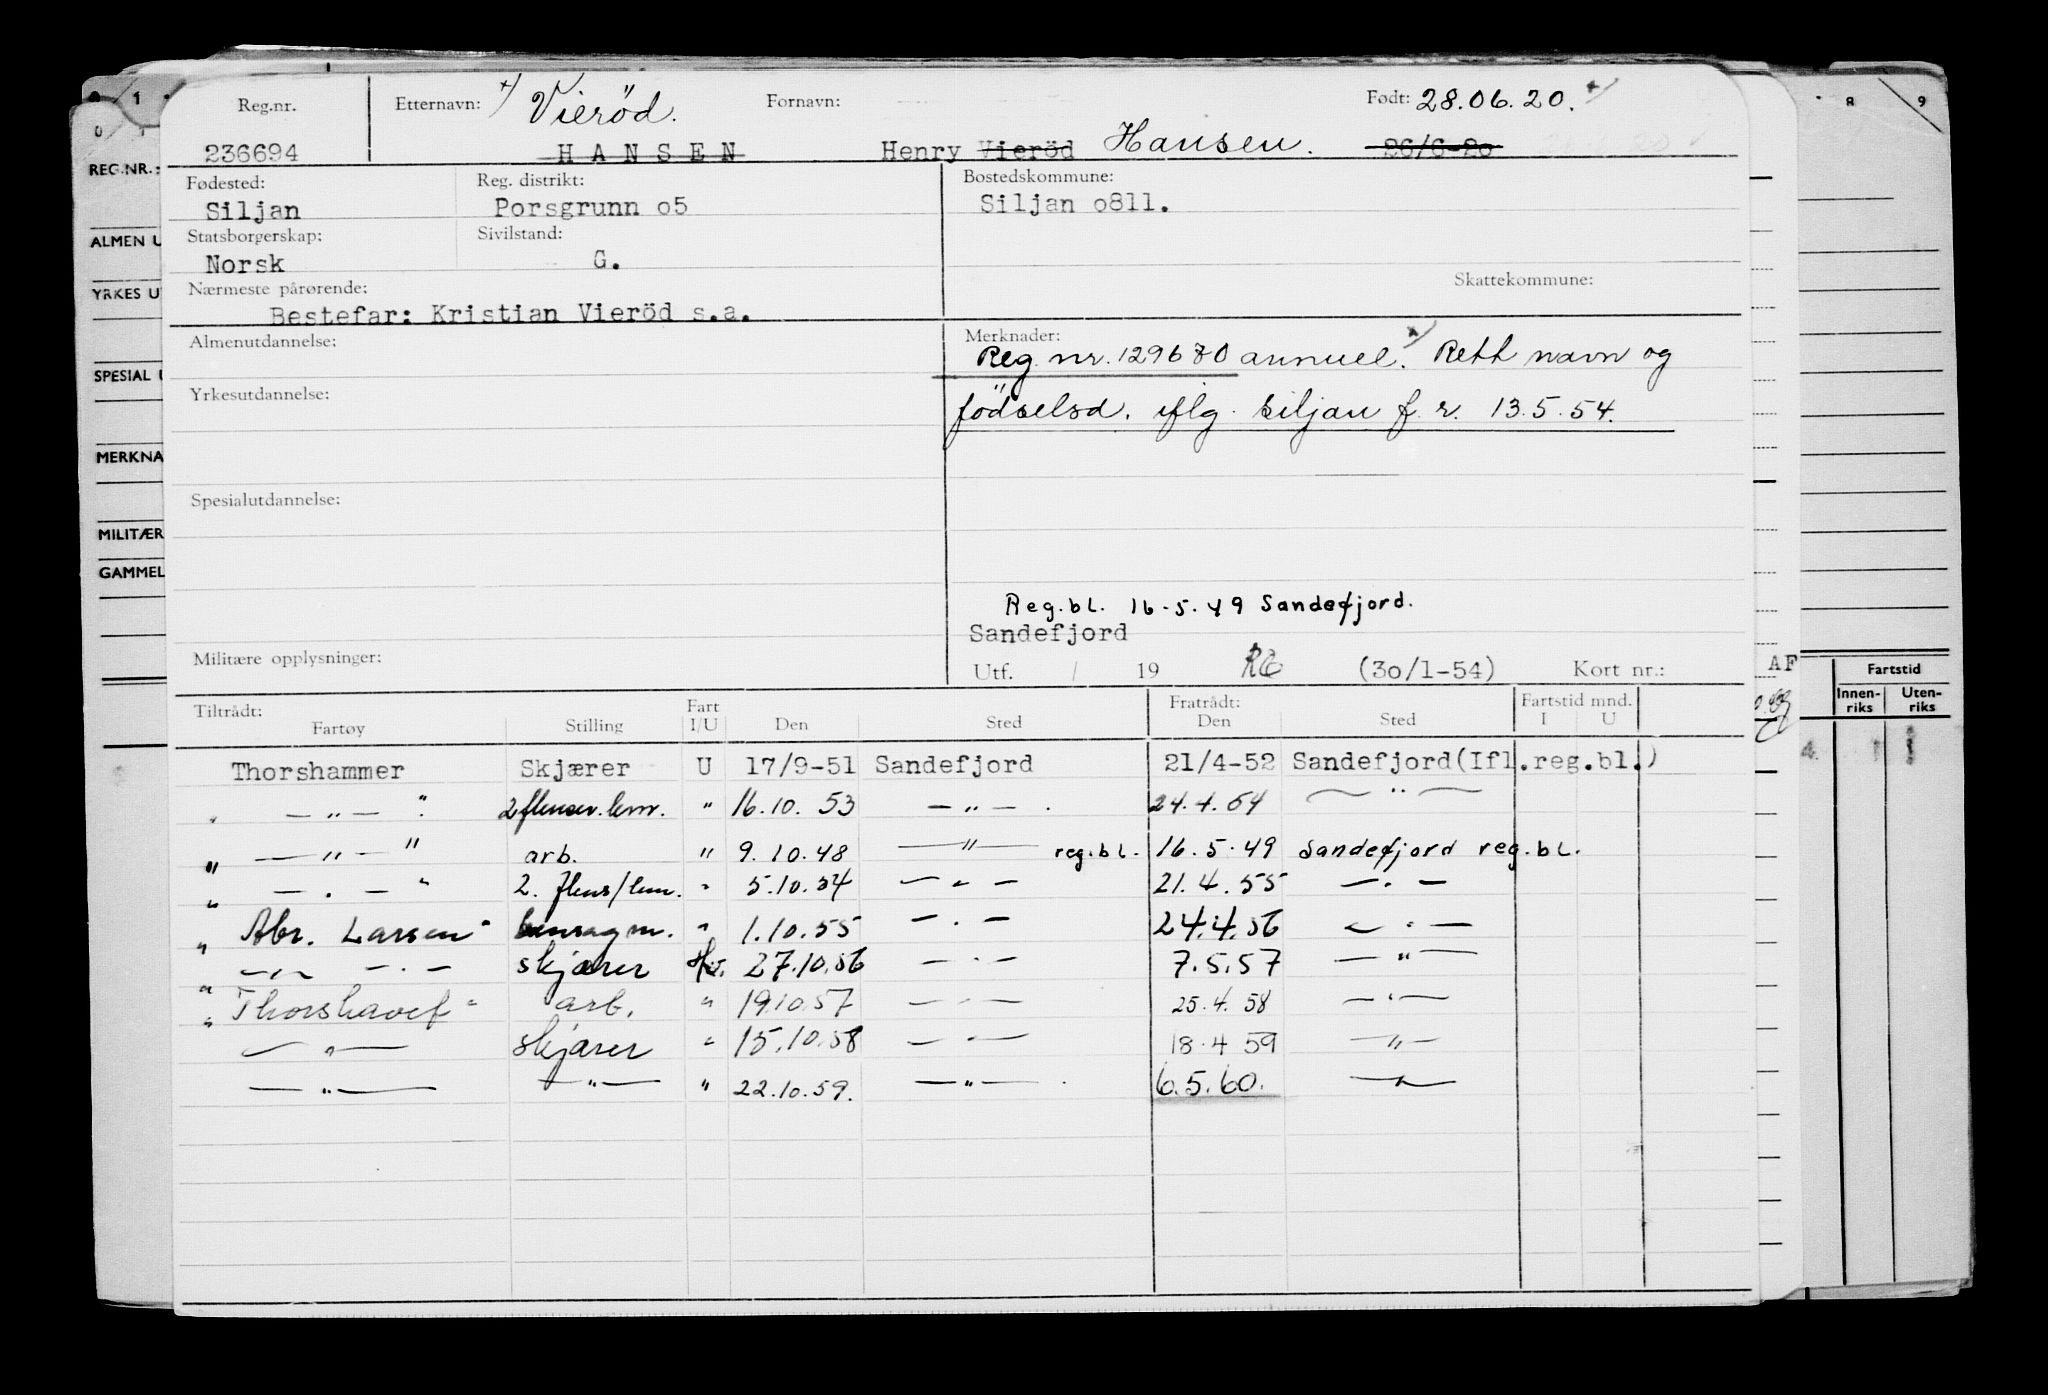 Reg.nr. Etternavn: x) Vieröd. Fornavn: Født: 28.06.20. x)
236694 HANSEN Henry Vieröd Hansen. 26/6-20
Fødested: Reg. distrikt: Bostedskommune:
Siljan Porsgrunn o5 Siljan o811.
Statsborgerskap: Sivilstand:
Norsk G.
Nærmeste pårørende: Skattekommune:
Bestefar: Kristian Vieröd s.a.
Almenutdannelse: Merknader:
Reg nr. 129670 annuel. x) Rett navn og
Yrkesutdannelse:
födselsd. iflg. Siljan f.r. 13.5.54.
Spesialutdannelse:
Reg.bl. 16-5.49 Sandefjord.
Sandefjord
Militære opplysninger: Utf. / 19 (3o/1-54) Kort nr.:
Tiltrådt: Fart Fratrådt: Fartstid mnd.
Fartøy Stilling I/U Den Sted Den Sted I U
Thorshammer Skjærer U 17/9-51 Sandefjord 21/4-52 Sandefjord(Ifl.reg.bl.)
" — " — " 2 flenser.lem. " 16.10.53 — " — . 24.4.54 — " —
" — " — " arb. " 9.10.48 — " — reg.bl. 16.5.49 Sandefjord reg.bl.
" — " — " 2. flens/lem. " 5.10.54 — " — 21.4.55 — " —
" Abr. Larsen " bensagm. " 1.10.55 — " — 24.4.56 — " —
" — " — — " — skjærer 27.10.56 — " — 7.5.57 — " —
" Thorshavet " arb. " 19.10.57 — " — 25.4.58 — " —
— " — skjærer " 15.10.58 — " — 18.4 59 — " —
— " — — " — " 22.10.59. — " — . 6.5.60. — " —
0 1 8 9
REG.NR.:
ALMEN U
YRKES U
SPESIAL U
MERKNA
MILITÆR
GAMMEL
AF
Fartstid
Innen-riks Uten-riks